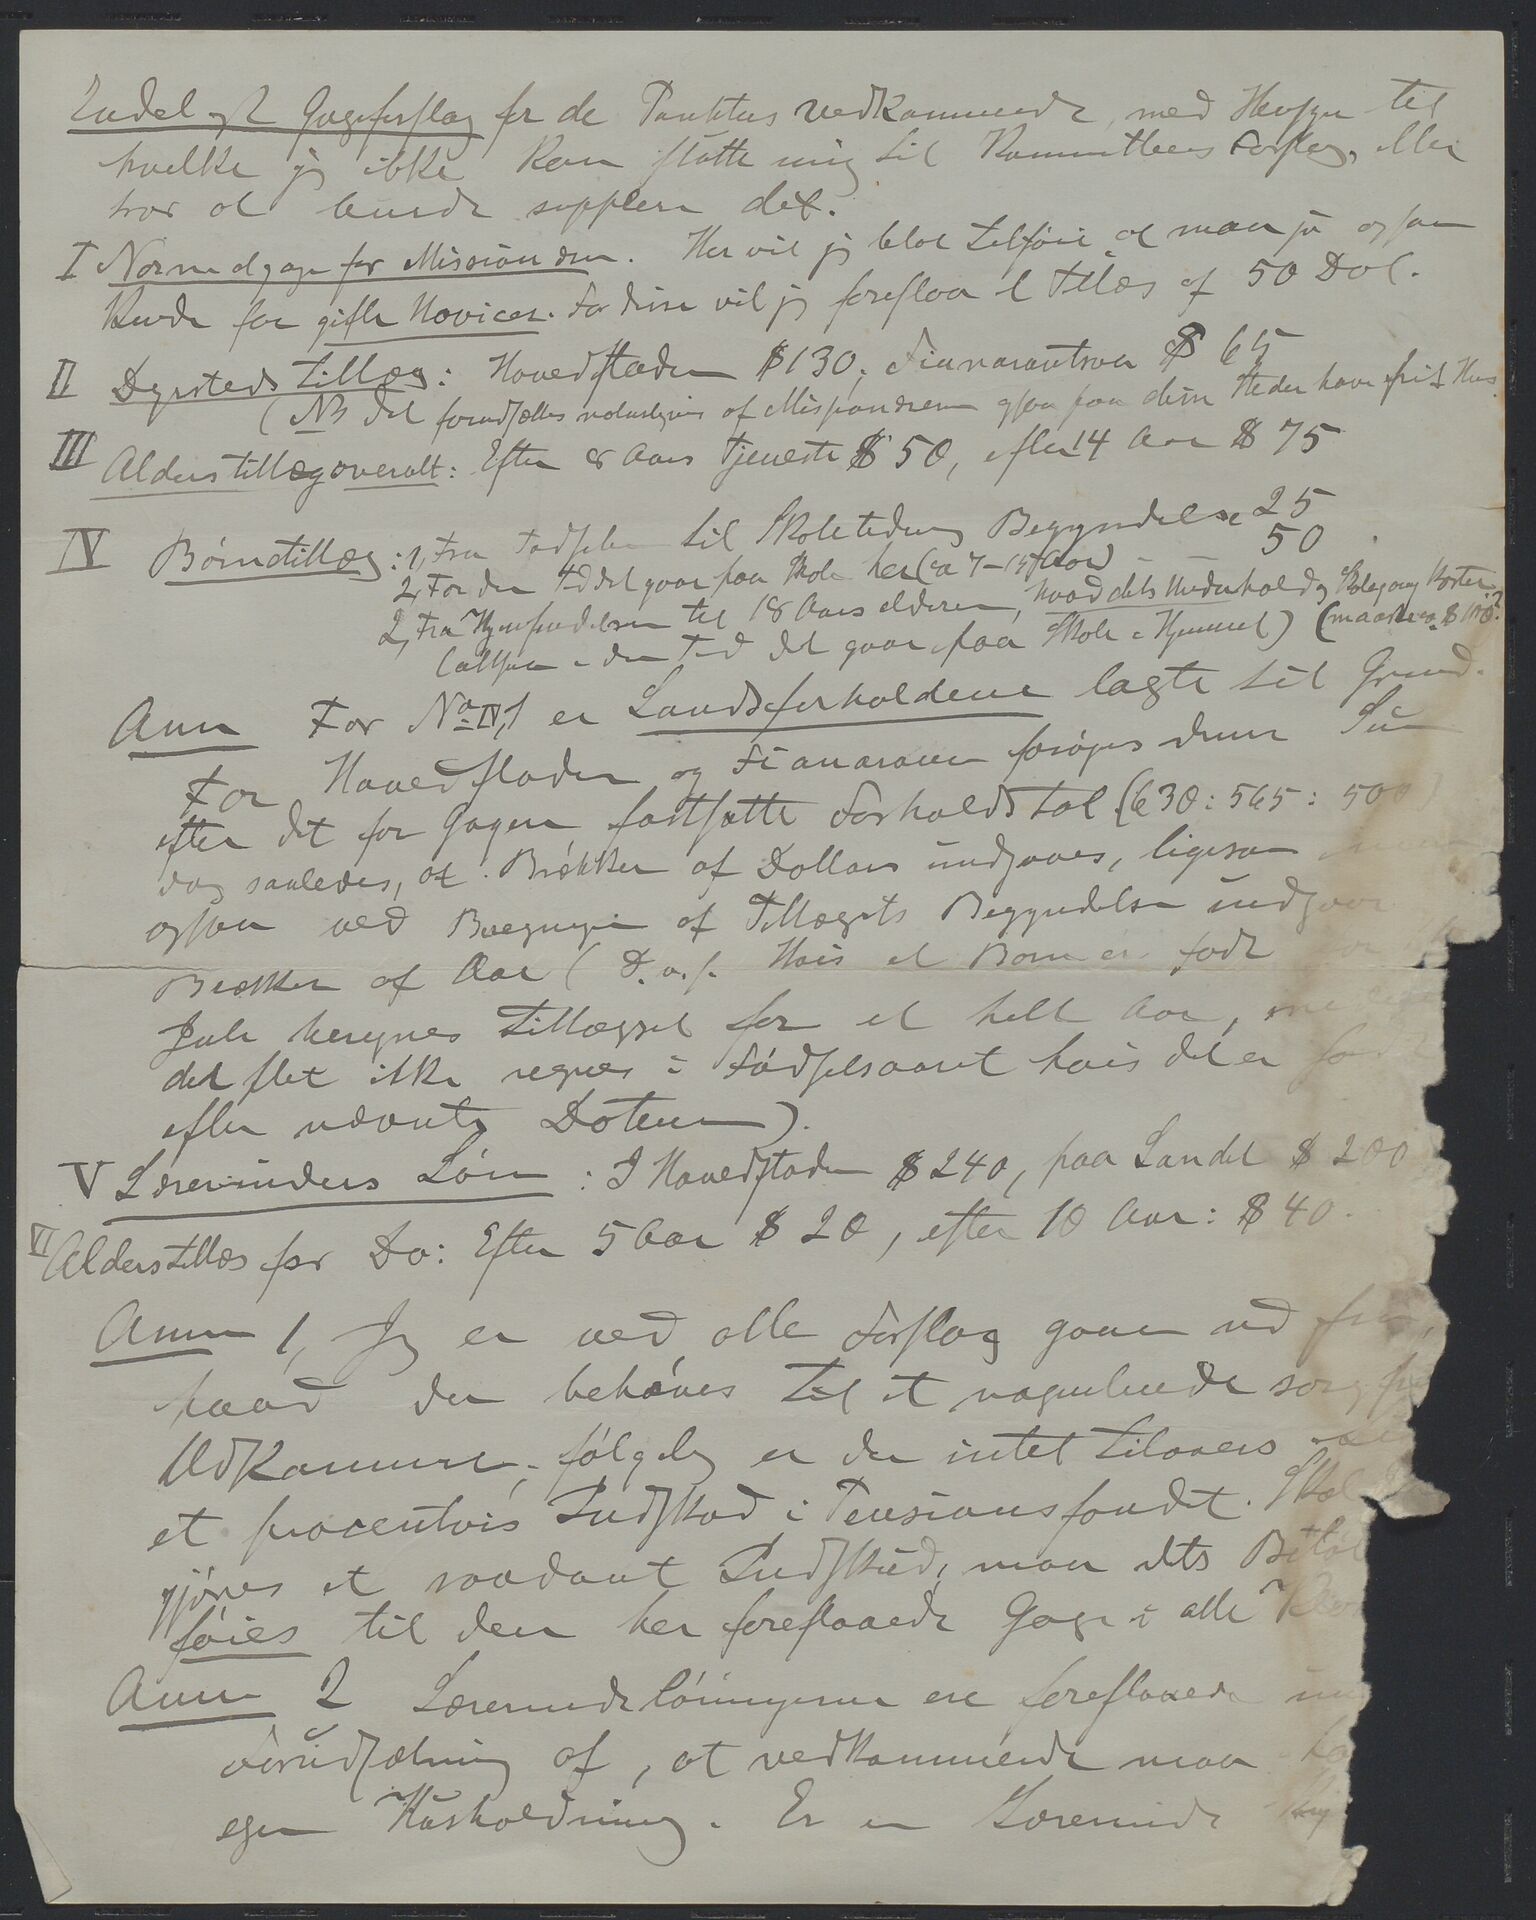 Endeligt Gageforslag for de Punkters vedkommende, med Hensyn til
hvilke jeg ikke kan støtte mig til Kommitteens Forslag, eller
tror at burde supplere det.
I Normalgage for Missionærer. Her vil jeg blot tilføie at man jo ogsaa
for gifte Novicer. For disse vil jeg foreslaa et Tillæg af 50 Dol.
II Dyrstedstillæg: Hovedstaden $130, Fianarantsoa $ 65
(NB Det forudsættes naturligvis at Missionærerne ogsaa paa disse Steder have frit Hus
III Alderstillæg overalt: Efter 8 Aars Tjeneste $ 50, efter 14 Aar $ 75
IV Børnetillæg: 1, Fra Fødselen til Skoletidens Begyndelse 25
2, For den Tid det gaar paa Skole her (ca 7-15 Aar) — — 50
2, Fra Hjemsendelsen til 18 Aars alderen, hvad dets Underhold og Skolegang koster
(altsaa i den Tid det gaar paa Skole i Hjemmet) (maaske ca. $
Anm For No IV,1 er Landsforholdene lagte til Grund.
For Hovedstaden og Fianarantsoa forøges denne Sum
efter det for Gagen fastsatte Forholdstal (630 : 565 : 500
dog saaledes, at Brøkker af Dollars undgaaes, ligesom
ogsaa ved Beregningen af Tillægets Begyndelse undgaaes
Brøkker af Aar (D.v.s. Hvis et Barn er født
Juli beregnes Tillægget for et helt Aar,
det slet ikke regnes i Fødselsaaret hvis det er født
efter nævnte Datum).
V Lærerinders Løn : I Hovedstaden $ 240, paa Landet $ 200
VI Alderstillæg for Do: Efter 5 Aar $ 20, efter 10 Aar: $ 40.
Anm 1, Jeg er ved alle Forslag gaaet ud fra,
hvad der behøves til et nogenlunde sorgfrit
Udkomme, følgelig er der intet tilovers
et procentvis Indskud i Pensionsfondet. Skal
gjøres et saadant Indskud, maa dets Beløb
føies til den her foreslaaede Gage i alle
Anm 2 Lærerindelønningerne ere foreslaaede under
Forudsætning af, at vedkommende maa
egen Husholdning. Er en Lærerinde